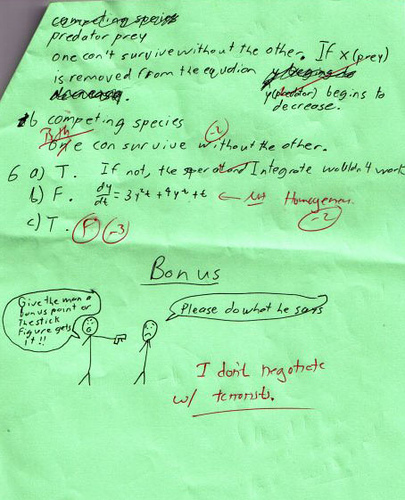 competing species
predator prey
one can't survive without the other. If x(prey)
is removed from the equation y begins to
decrease. y(predator) begins to
decrease.
b competing species
Both
one can survive without the other. -2
6 a) T. If not, the seperate and Integrate wouldn't work
b) F. dy/dt = 3y²t + 4y²t + t ← Homogeneous. -2
c) T. F -3
Bonus
Give the man a
bonus point or
The stick
Figure gets
it!!
Please do what he says
I don't negotiate
w/ terrorists.